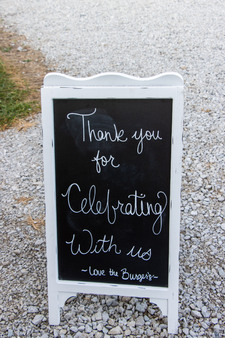 Thank you
for
Celebrating
With us
~Love the Burges's~